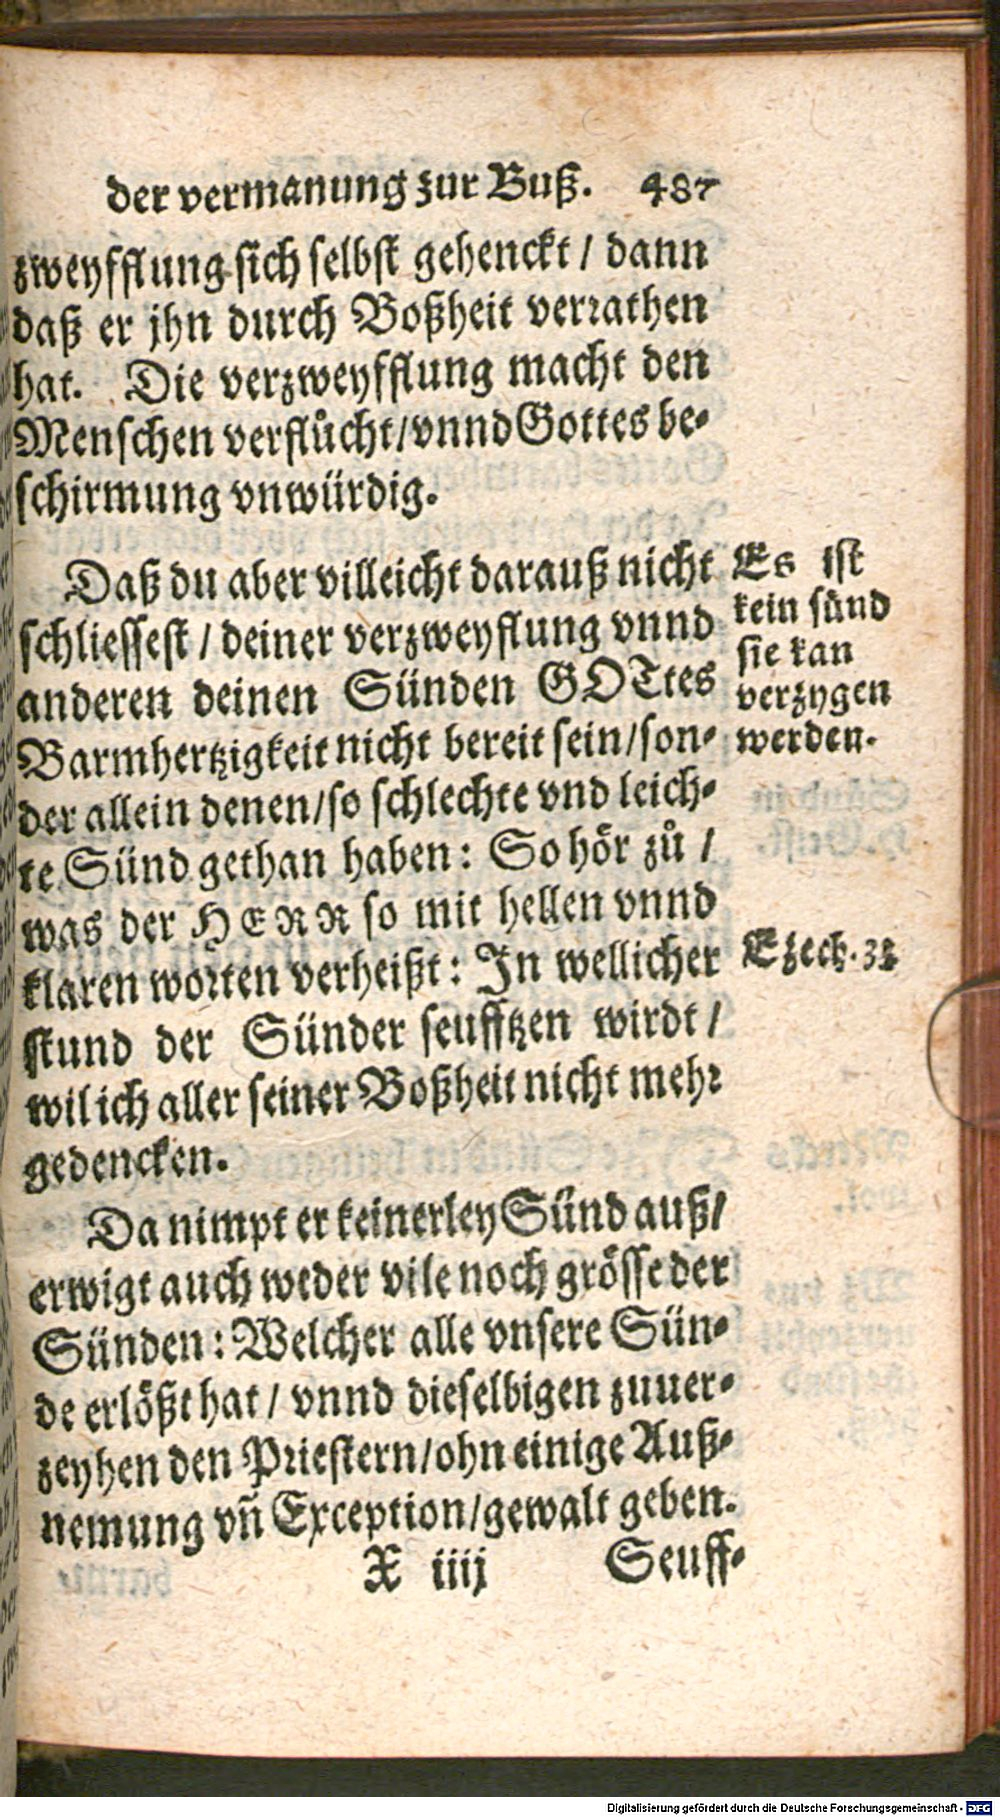 der vermanung zur Buß. 487
zweyfflung sich selbst gehenckt / dann
daß er jhn durch Boßheit verrathen
hat. Die verzweyfflung macht den
Menschen verflůcht / vnnd Gottes be-
schirmung vnwürdig.
Daß du aber villeicht darauß nicht
schliessest / deiner verzweyflung vnnd
anderen deinen Sünden GOTtes
Barmhertzigkeit nicht bereit sein / son-
der allein denen / so schlechte vnd leich-
te Sünd gethan haben: So hör zů /
was der HERR so mit hellen vnnd
klaren worten verheißt: In wellicher
stund der Sünder seufftzen wirdt /
wil ich aller seiner Boßheit nicht mehr
gedencken.
Es ist
kein sünd
sie kan
verzygen
werden.
Ezech. 33
Da nimpt er keinerley Sünd auß /
erwigt auch weder vile noch grösse der
Sünden: Welcher alle vnsere Sün-
de erlößt hat / vnnd dieselbigen zuuer-
zeyhen den Priestern / ohn einige Auß-
nemung vñ Exception / gewalt geben.
X iiij Seuff-
Digitalisierung gefördert durch die Deutsche Forschungsgemeinschaft - DFG